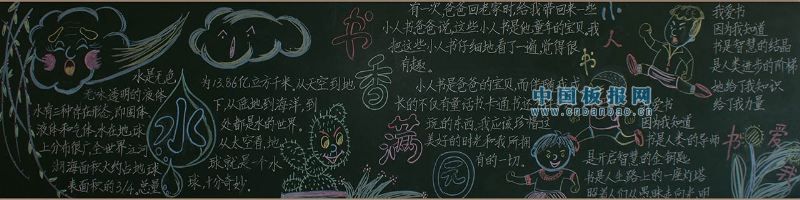 水是无色
无味透明的液体
水有三种存在形态,即固体、
液体和气体。水在地球
上分布很广,全世界江河
湖海面积大约占地球
表面积的3/4。总量
水
为13.86亿立方千米,从天空到地
下,从陆地到海洋到
处都是水的世界。
从太空看,地
球就是一个水
球,十分奇妙。
书香满园
有一次,爸爸回老家时,给我带回来一些
小人书,爸爸说,这些小人书是他童年的宝贝。我
把这些小人书仔细地看了一遍,觉得很
有趣。
小人书是爸爸的宝贝,而伴随我成
长的不仅有童话书卡通书还
玩的东西,我应该珍惜这
美好的时光和我所拥
有的一切。
小人书
中国板报网
www.cnbanbao.cn
我爱书
因为我知道
书是智慧的结晶
是人类进步的阶梯
她给了我知识
给了我力量
因为我知道
书是人类的导师
是开启智慧的金钥匙
书是人生路上的一座灯塔
照着人们从愚昧走向光明
书爱我